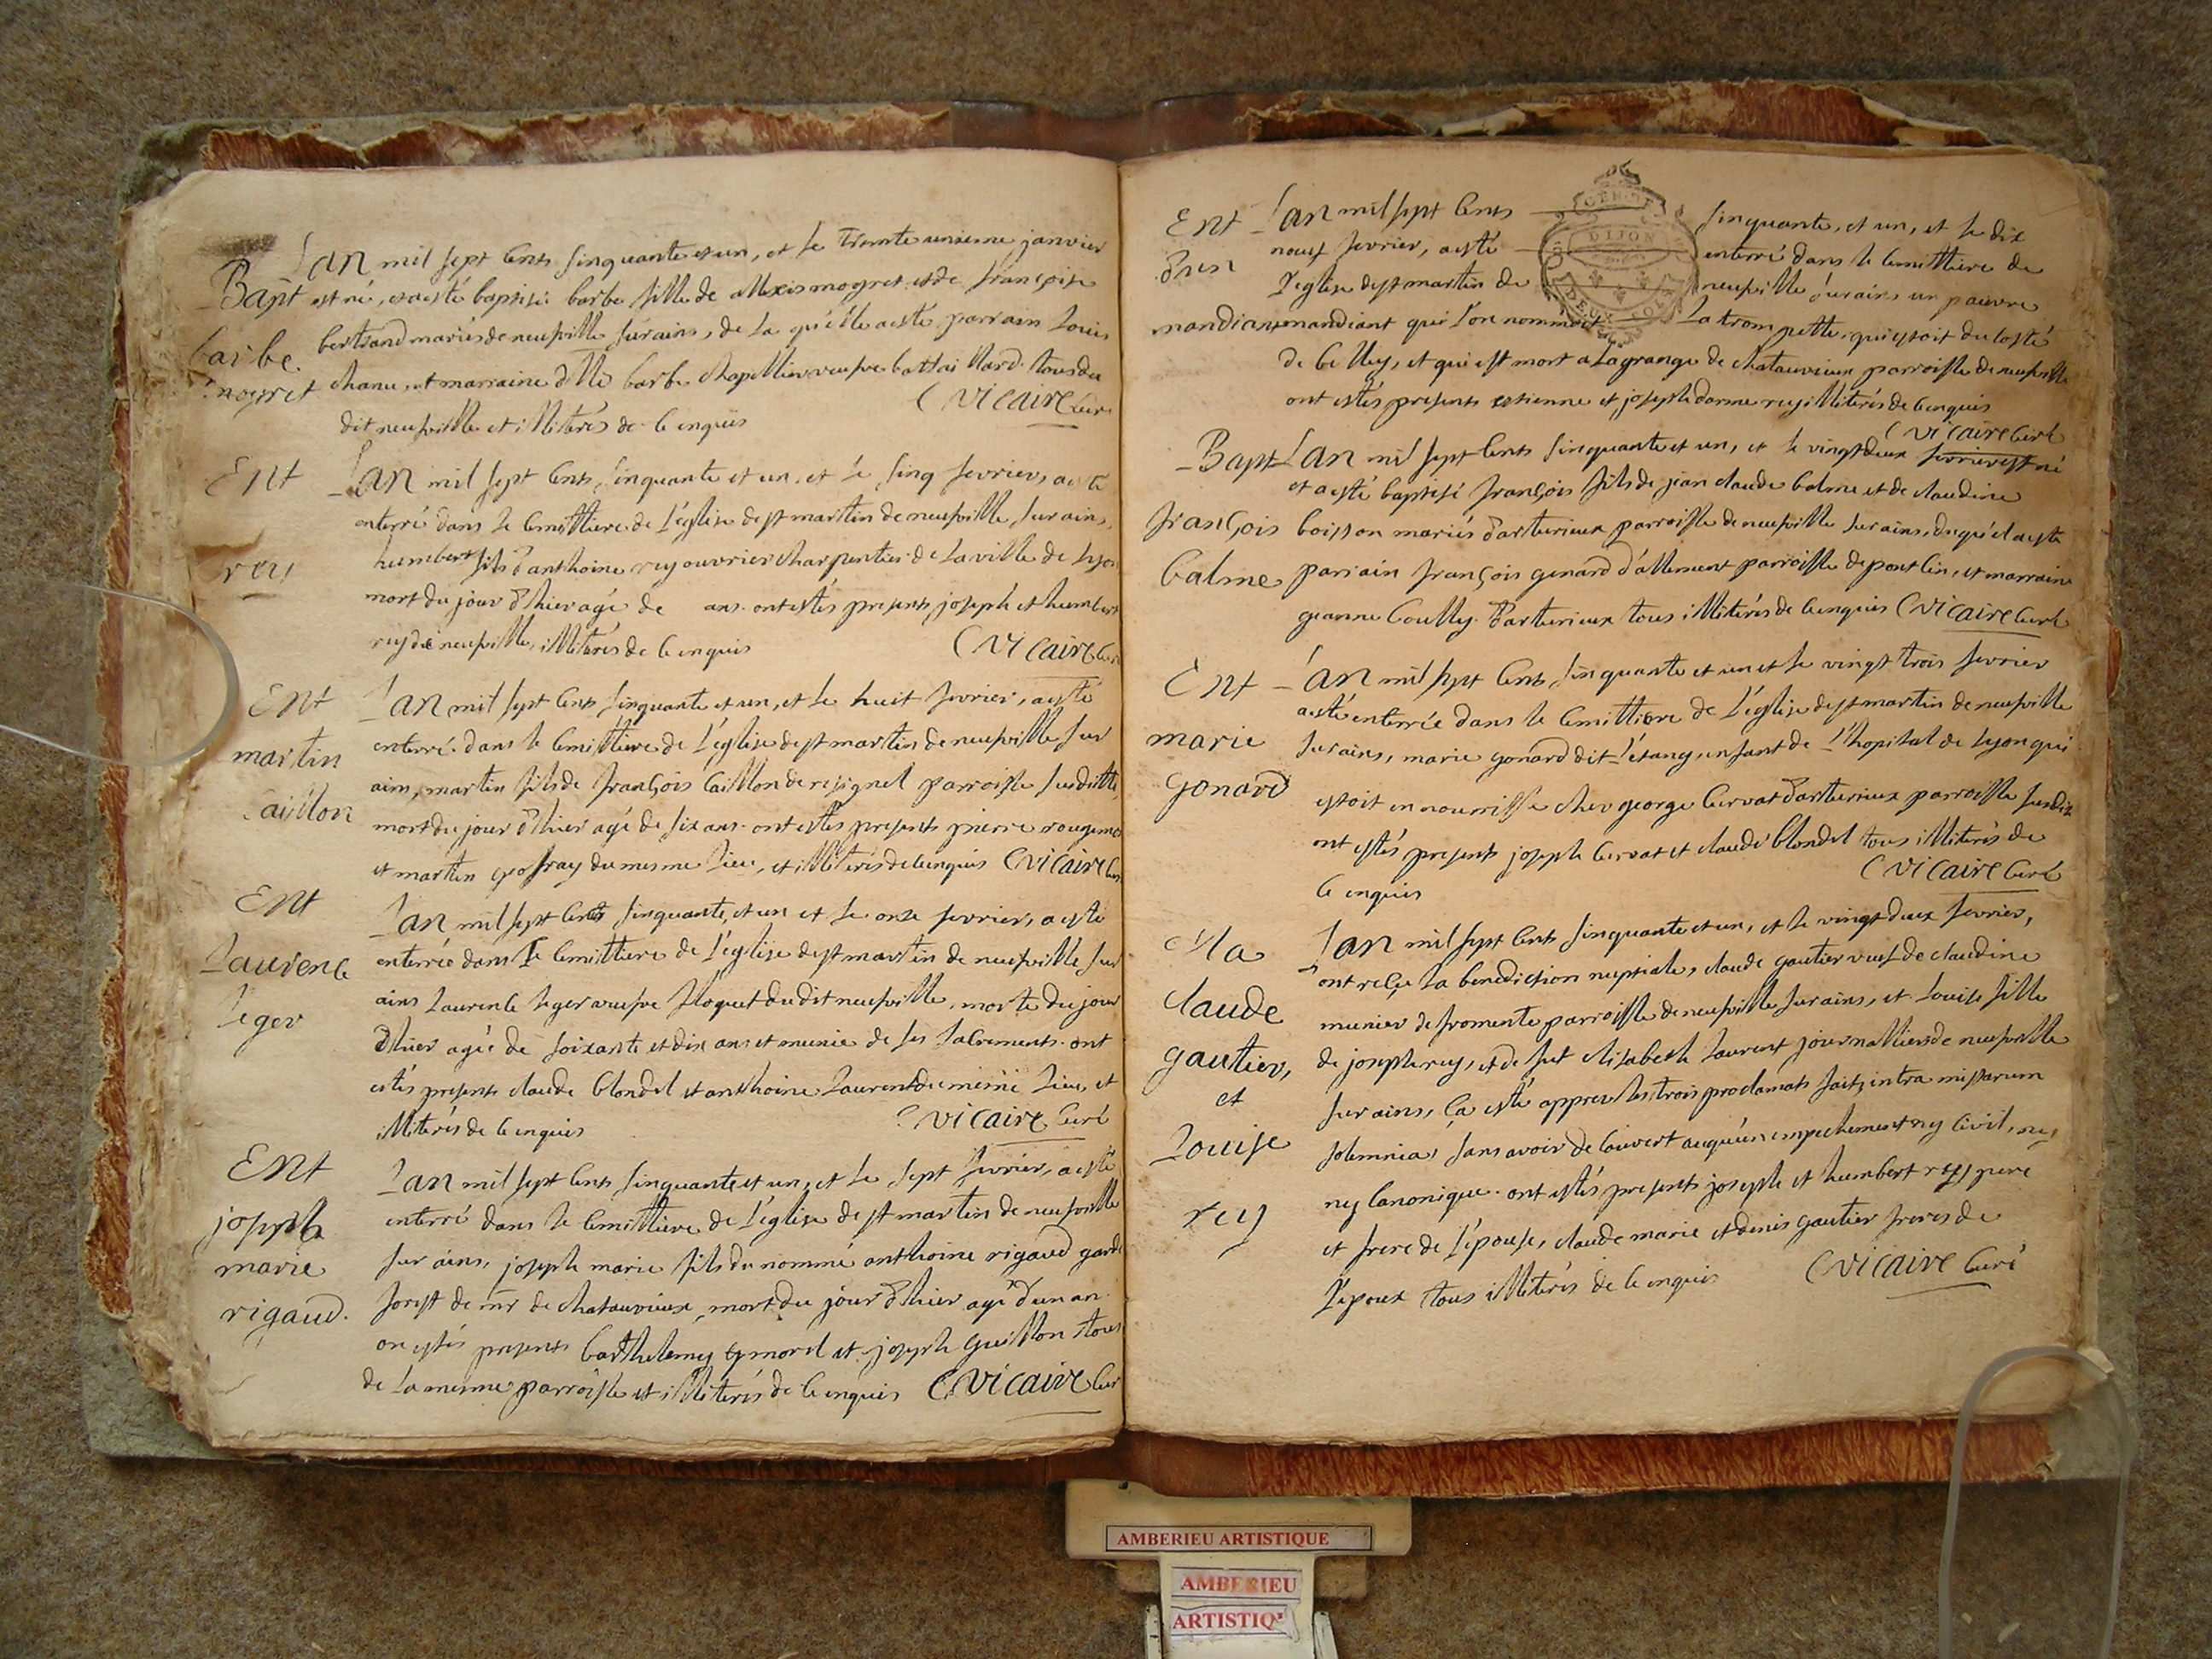 Bapt
barbe
mogret
Lan mil sept cents sinquante et un, et le trente unieme janvier
est né, et a esté baptisé barbe fille de allexis mogret et de françoise
bertrand mariés de neufville sur ains, de la quélle a esté parrain louis
chanu, et marraine dlle barbe chapellier veufve battaillard tous du
dit neufville et illiterés de ce enquis
C vicaire curé
Ent
rey
Lan mil sept cents sinquante et un, et le sinq fevrier, a esté
enterré dans le cemittiere de l'église de st martin de neufville sur ains,
humbert fils d'anthoine rey ouvrier charpentier de la ville de lyon
mort du jour d'hier agé de ans. ont estés presents joseph et humbert
rey de neufville, illiterés de ce enquis
C vicaire cur
Ent
martin
caillon
Lan mil sept cents sinquante et un, et le huit fevrier, a esté
enterré dans le cemittiere de l'église de st martin de neufville sur
ains, martin fils de françois caillon de resignel parroisse susditte,
mort du jour d'hier agé de six ans. ont estés presents pierre rougemo
et martin geofray du mesme lieu, et illiterés de ce enquis C vicaire cur
Ent
Laurence
Leger
Lan mil sept cents sinquante, et un et le onze fevrier, a esté
enterrée dans le cemittiere de l'église de st martin de neufville sur
ains laurence leger veufve floquet du dit neufville, morte du jour
d'hier agée de soixante et dix ans et munie de ses sacrements. ont
estés presents claude blondel et anthoine laurent du même lieu, et
illiterés de ce enquis
C vicaire curé
Ent
joseph
marie
rigaud.
Lan mil sept cents sinquante et un, et le sept fevrier, a esté
enterré dans le cemittiere de l'église de st martin de neufville
sur ains, joseph marie fils du nommé anthoine rigaud garde
forest de mr de chatauvieux, mort du jour d'hier agé d'un an.
on estés presents barthelemy et joseph guillon tous
de la mesme parroisse et illiterés de ce enquis C vicaire cur
Ent
mandiant
Lan mil sept cents sinquante, et un, et le dix
neuf fevrier, a esté enterré dans le cemittiere de
l'eglise de st martin de neufville sur ains un pauvre
mandiant qui l'on nommoit la trompette, qui estoit du costé
de belley, et qui est mort a lagrange de chatauvieux parroisse de neufville
ont estés presents estienne et joseph darme rey illiterés de ce enquis
C vicaire curé
DIJON
Bapt
françois
balme
Lan mil sept cents sinquante et un, et le vingt deux fevrier est né
et a esté baptisé françois fils de jean claude balme et de claudine
boisson mariés d'arturieux parroisse de neufville sur ains, du quél a esté
parrain françois genard d'allement parroisse de pont lin, et marraine
jeanne coully d'arturieux tous illiterés de ce enquis C vicaire curé
Ent
marie
gonard
Lan mil sept cents sinquante et un et le vingt trois fevrier
a esté enterrée dans le cemittiere de l'église de st martin de neufville
sur ains, marie gonard dit l'étang, enfant de l'hopital de lyon qui
estoit en nourrisse chez george cervat d'arturieux parroisse susdit
ont estés presents joseph cervat et claude blondel tous illiterés de
ce enquis
C vicaire curé
Ma
claude
gautier,
et
Louise
rey
Lan mil sept cents sinquante et un, et le vingt deux fevrier,
ont reçu la benediction nuptiale, claude gautier veuf de claudine
munier de fromente parroisse de neufville sur ains, et louise fille
de joseph rey, et de fut elisabeth laurent journalliers de neufville
sur ains, ça esté apprez les trois proclamats faits intra missarum
solemnia, sans avoir decouvert auquun empechement ny civil, ny
ny canonique. ont estés presents joseph et humbert rey pere
et frere de l'épouse, claude marie et denis gautier freres de
l'époux tous illiterés de ce enquis
C vicaire curé
AMBERIEU ARTISTIQUE
AMBERIEU
ARTISTIQ